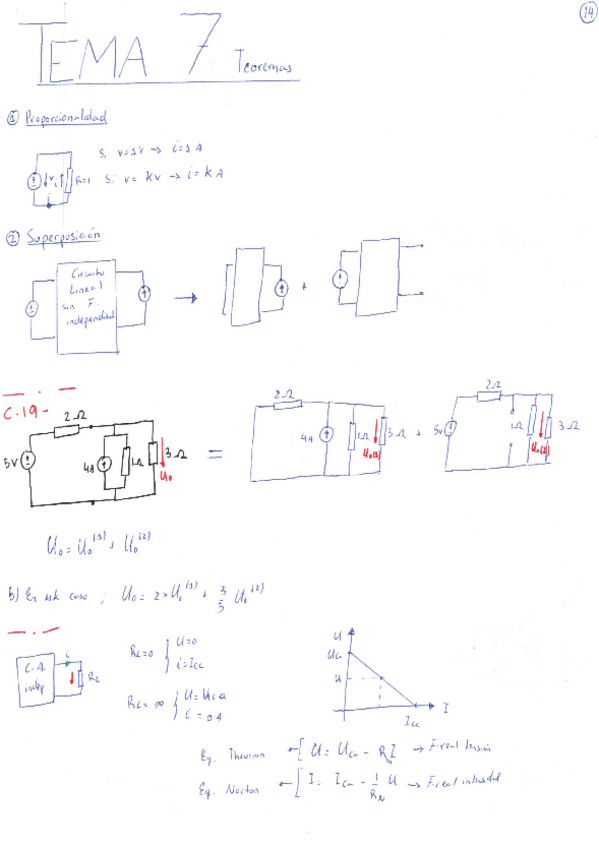 14
TEMA 7 Teoremas
① Proporcionalidad
Si v=1v → i=1A
R=1 Si v= kv → i=kA
② Superposición
Circuito
Lineal
sin F.
independient
→ +
C.19-
2Ω 2Ω 2Ω
5V 4A 1Ω 3Ω U₀ = 4A 1Ω 3Ω U₀(1) + 5V 1Ω 3Ω U₀(2)
U₀ = U₀⁽¹⁾ + U₀⁽²⁾
b) En este caso ; U₀ = 2×U₀⁽¹⁾ + 3/5 U₀⁽²⁾
C.A. i RL
indep
RL=0 { U=0
i=Icc
RL=∞ { U=Uca
i=0A
U
Uca
u
I
Icc
Eq. Thevenin ← [ U = Uca - R I → F real tensión
Eq. Norton ← [ I = Icc - 1/RN U → F real intensidad